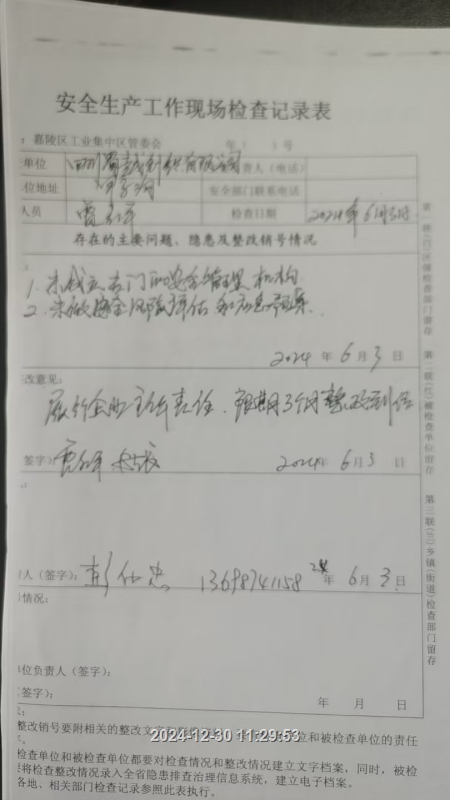 安全生产工作现场检查记录表
：嘉陵区工业集中区管委会 年（ ）号
单位 四川 有限公司 责人（电话）
位地址 安全部门联系电话
人员 检查日期 2024年6月3日
存在的主要问题、隐患及整改销号情况
1. 未成立专门的安全管理机构
2. 未做安全风险评估和应急预案.
2024年6月3日
改意见：
履行企业主体责任、限期3个月整改到位
签字） 2024年6月3日
人（签字）： 彭仕忠 13698741158 24年6月3日
情况：
单位负责人（签字）：
（签字）： 年 月 日
整改销号要附相关的整改文字 位和被检查单位的责任
检查单位和被检查单位都要对检查情况和整改情况建立文字档案，同时，被检
要将检查整改情况录入全省隐患排查治理信息系统，建立电子档案。
各地、相关部门检查记录参照此表执行。
第一联（白）区级检查部门留存
第二联（红）被检查单位留存
第三联（三）乡镇（街道）检查部门留存
2024-12-30 11:29:53